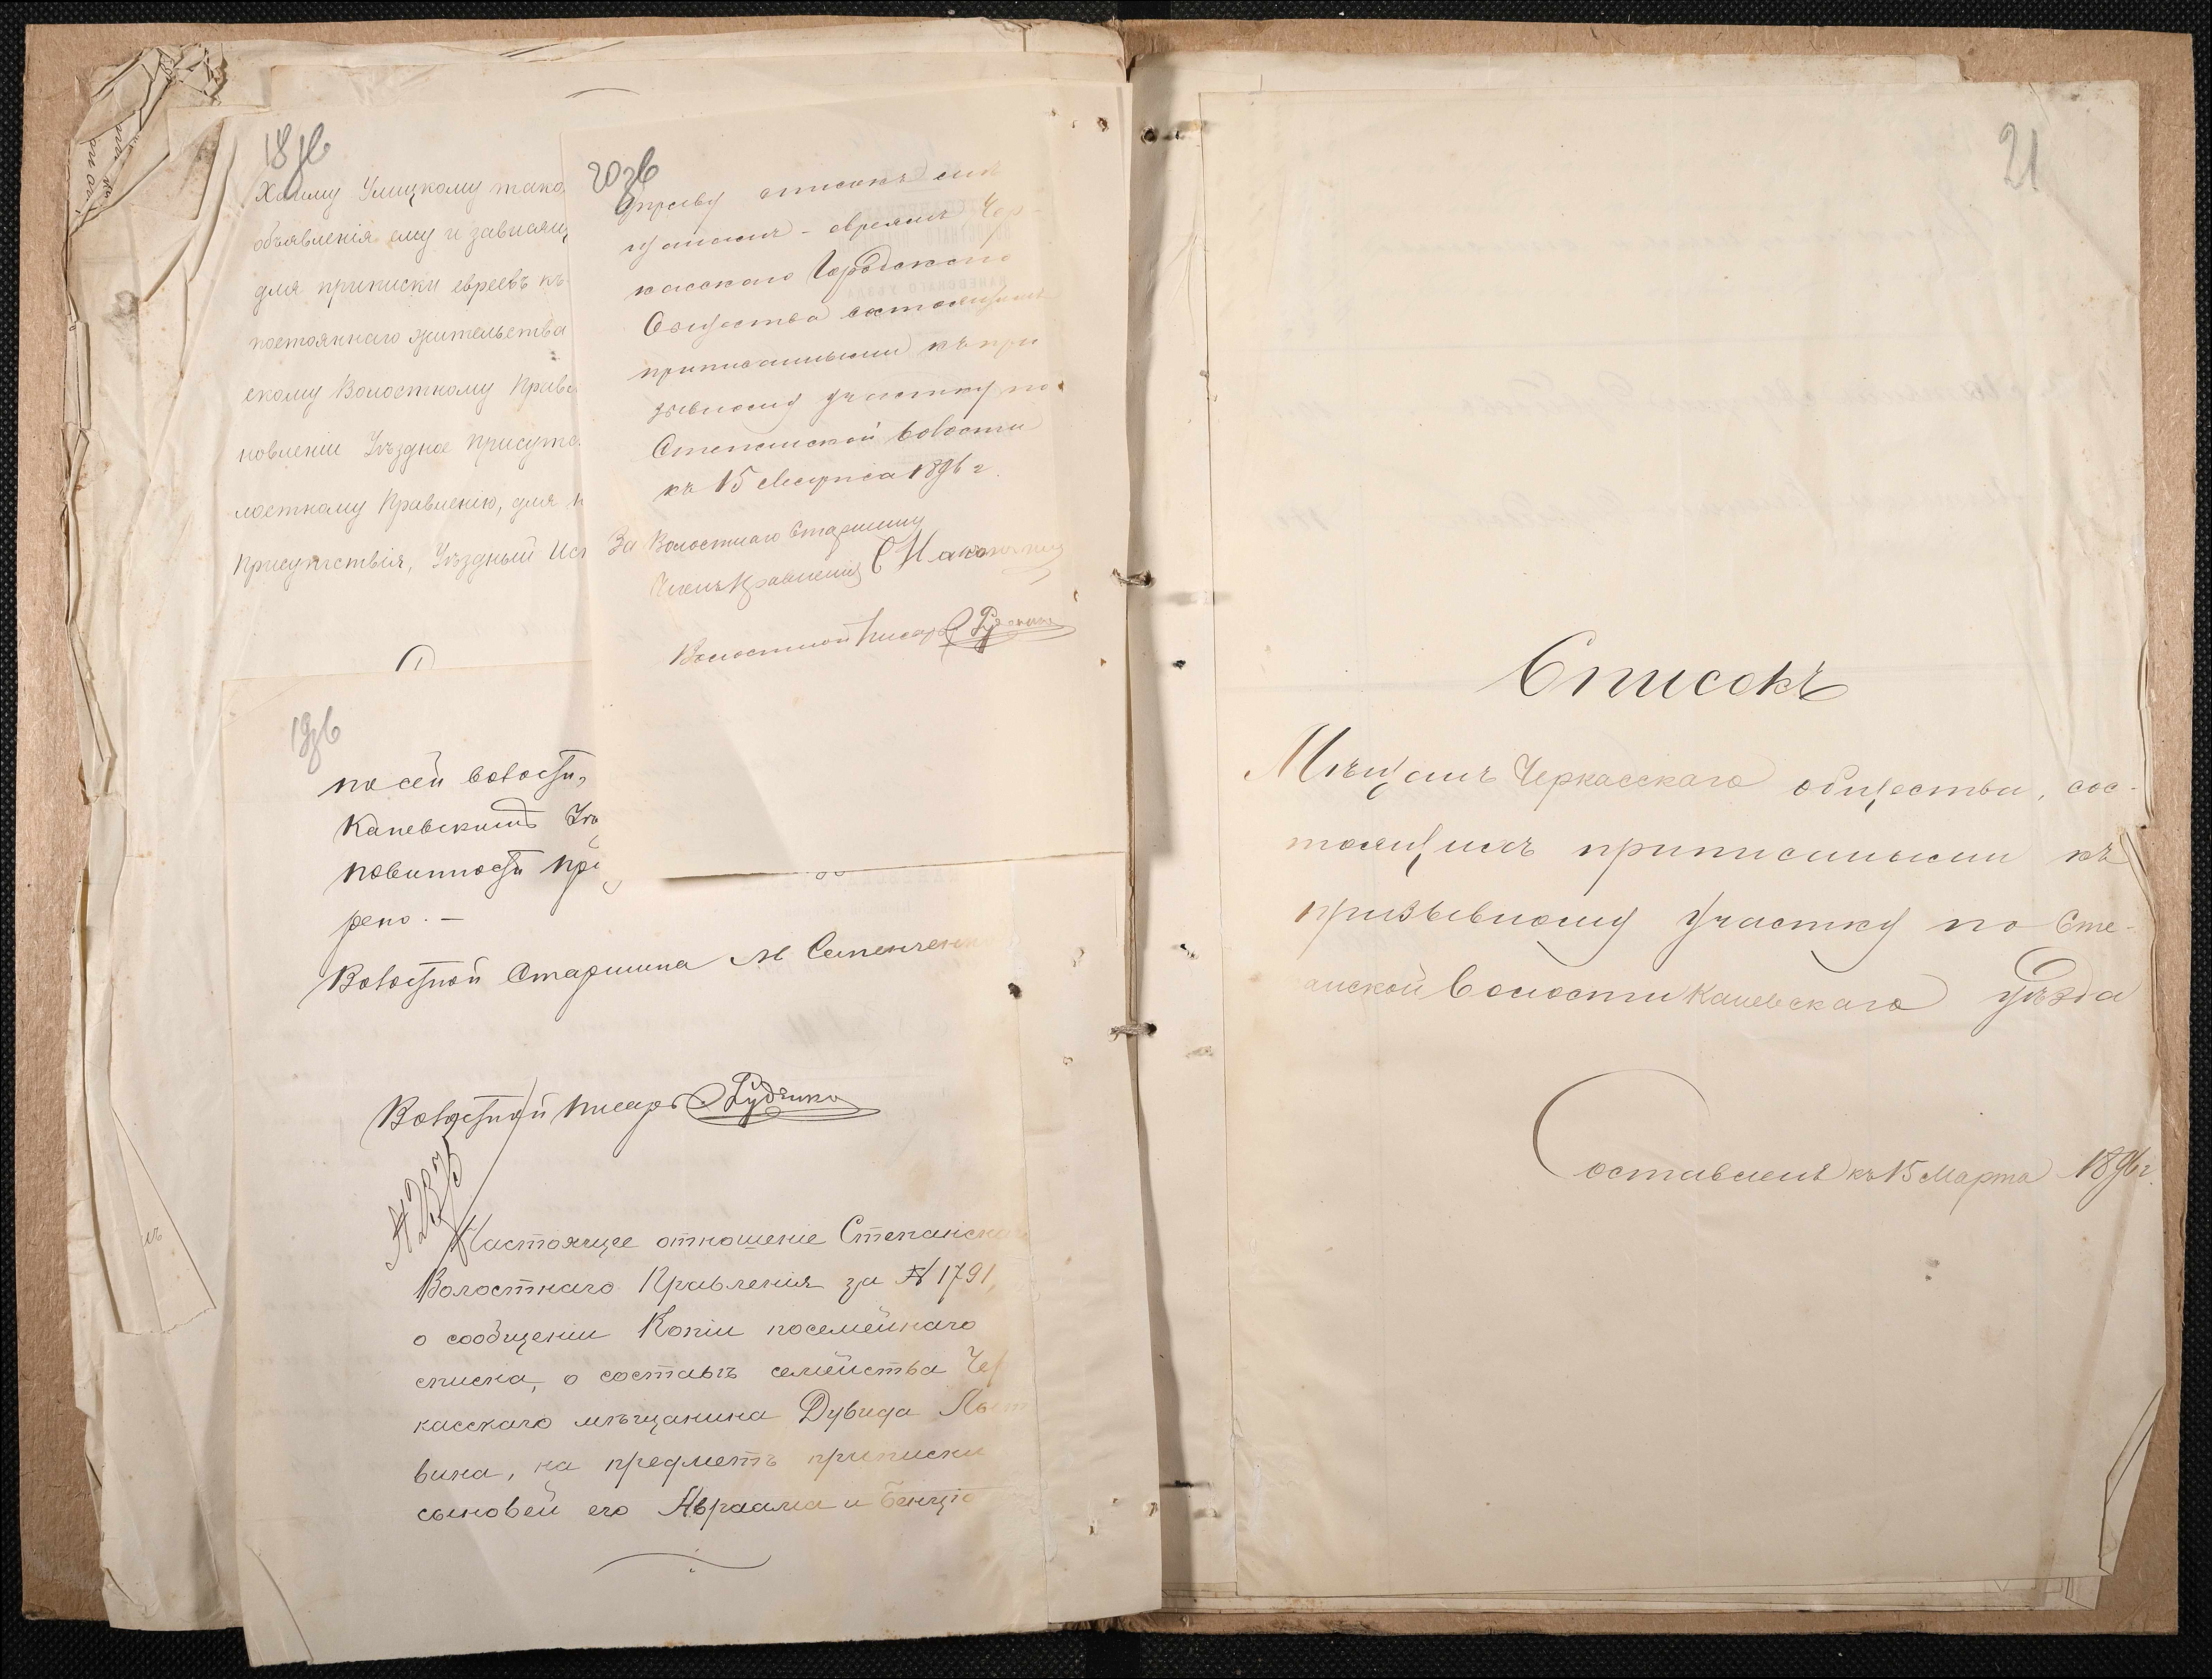 18зв
Хаиму Улицкому тако
объявленія ему и зависящ
для приписки евреевъ къ
постояннаго жительства
скому Волостному Правл
новленіи Уѣздное Присутс
лостному Правленію, для
Присутствія, Уѣздный Исп
20зв
Управу списокъ
щанамъ - евреямъ Чер-
касскаго Городскаго
Общества состоящимъ
приписанными къ при
зывному участку по
Степанской волости
къ 15 Марта 1896 г.
За Волостнаго Старшину
Членъ Правленія С
Волостной Писарь Руденко
19зв
по сей волости,
Каневскимъ Уѣ
повинности при
рено. —
Волостной Старшина М Семенченко
Волостной писарь Руденко
Настоящее отношеніе Степанска
Волостнаго Правленія за № 1791,
о сообщеніи Копіи посемейнаго
списка, о составѣ семейства Чер
касскаго мѣщанина Дувида
вина, на предметъ приписки
сыновей его Авраама и Бенціо
21
Списокъ
Мѣщанъ Черкасскаго общества, сос-
тоящихъ приписанными къ
призывному участку по Сте-
анской волости Каневскаго уѣзда
Составленъ къ 15 Марта 1896 г.